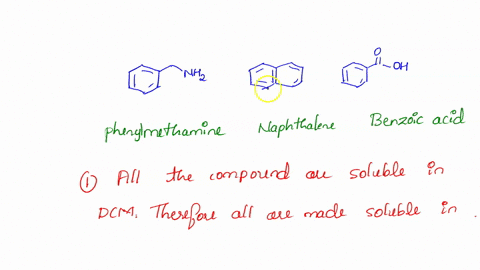 NH2
O
OH
phenylmethamine Naphthalene Benzoic acid
① All the compound are soluble in
DCM. Therefore all are made soluble in .